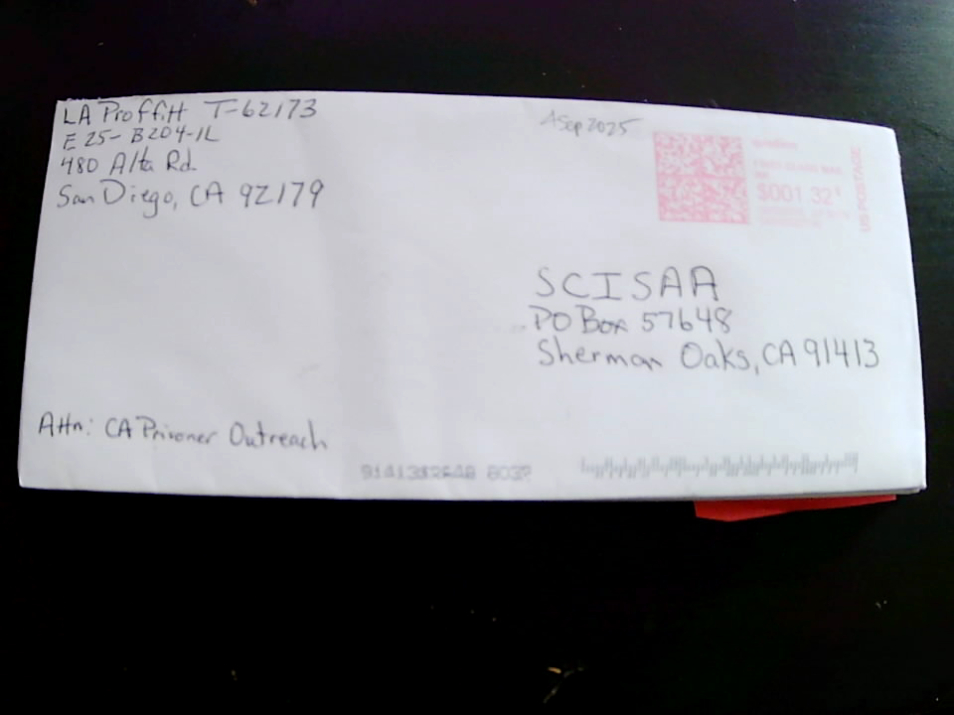 LA Proffitt T-62173
E 25-B204-1L
480 Alta Rd.
San Diego, CA 92179
4Sep2025
$001.32
US POSTAGE
SCISAA
PO Box 57648
Sherman Oaks, CA 91413
Attn: CA Prisoner Outreach